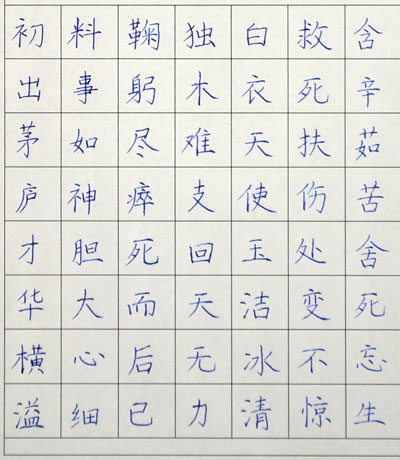 初出茅庐才华横溢
料事如神胆大心细
鞠躬尽瘁死而后已
独木难支回天无力
白衣天使玉洁冰清
救死扶伤处变不惊
含辛茹苦舍死忘生